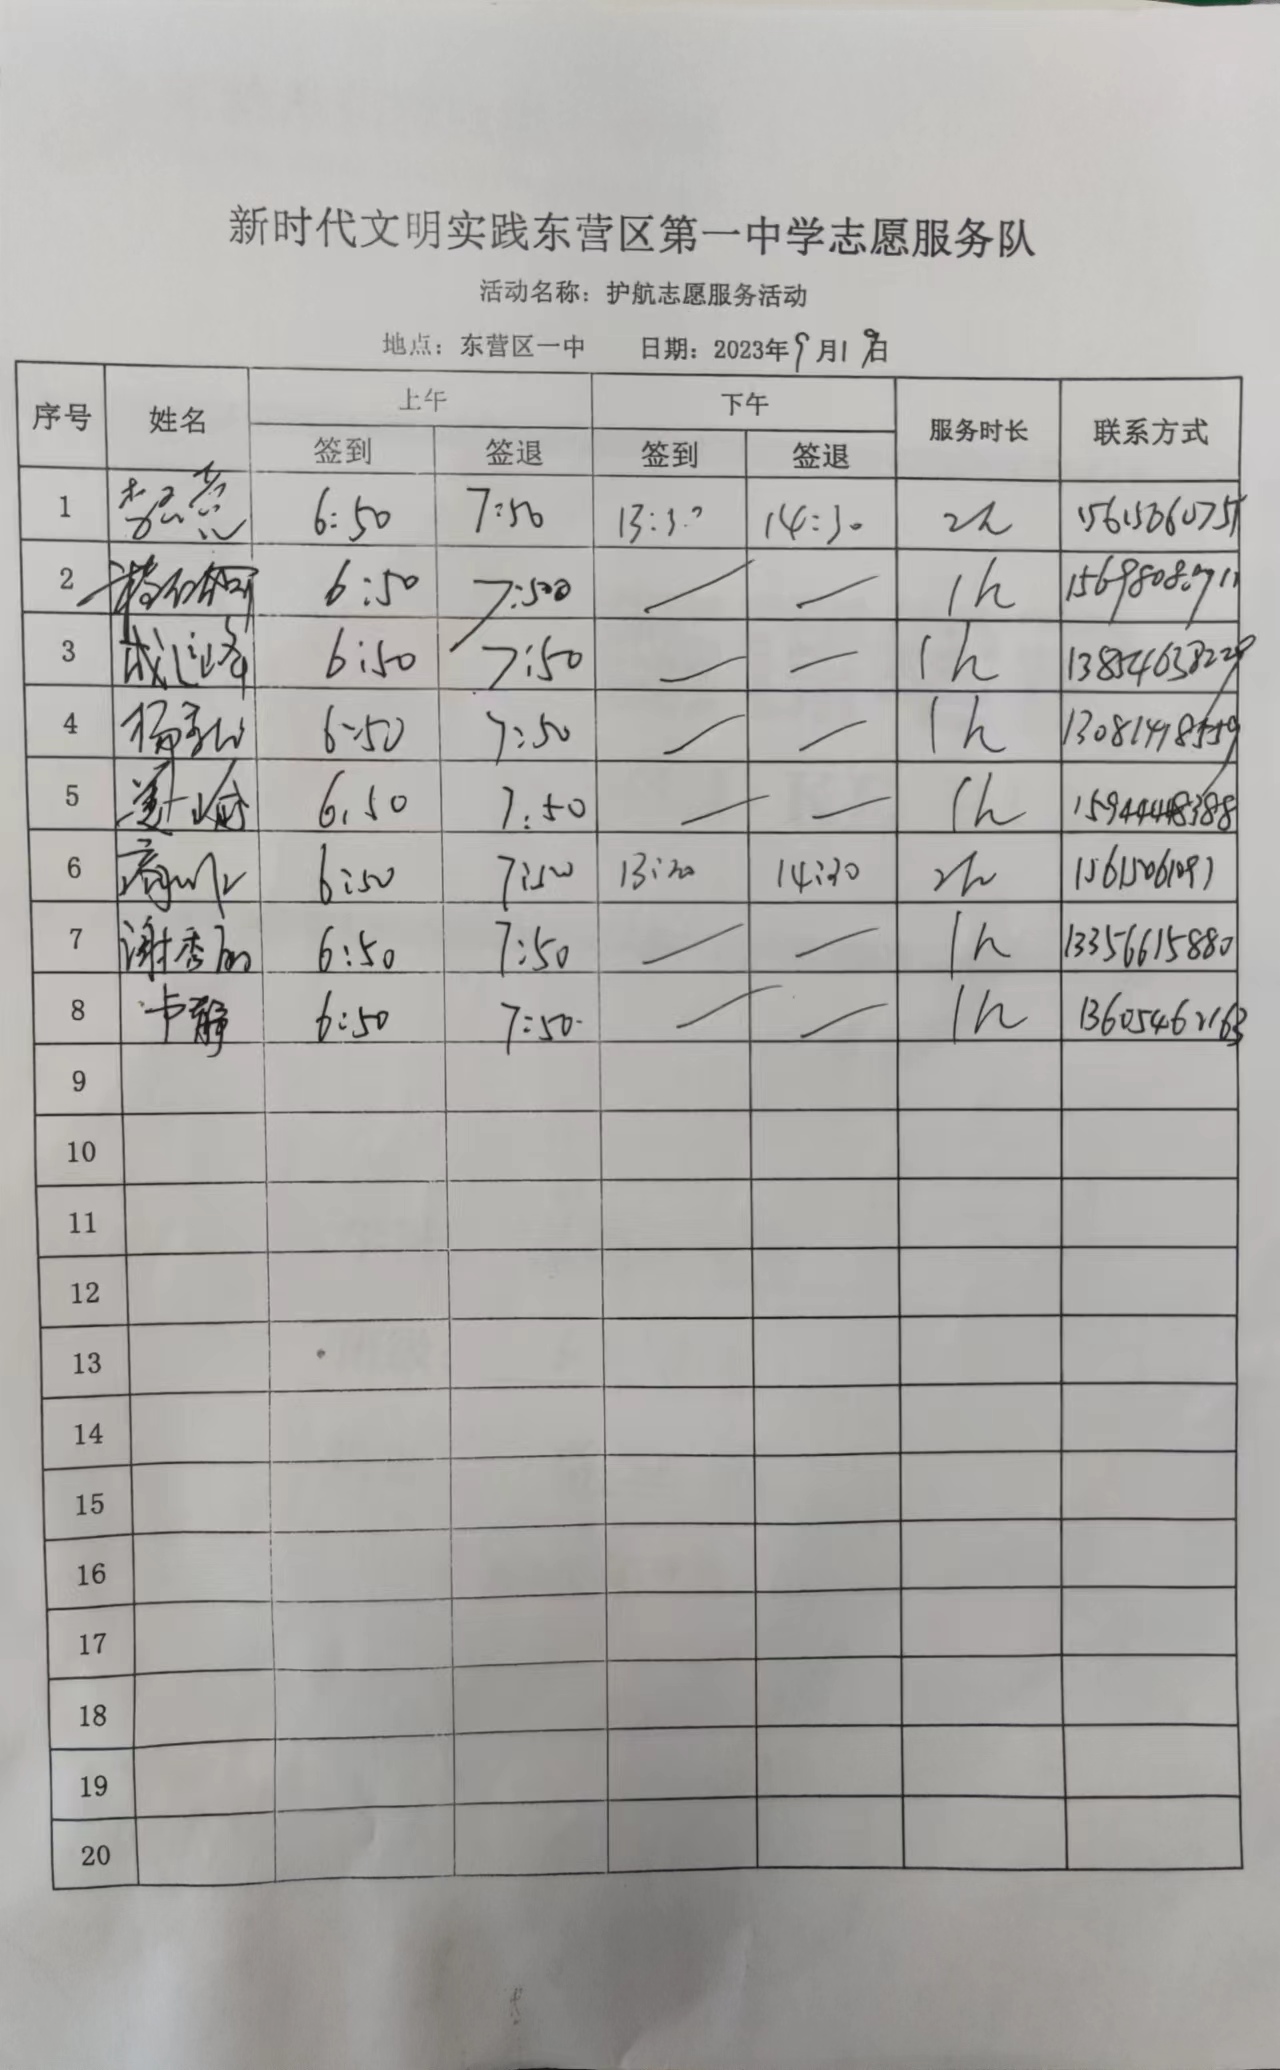 新时代文明实践东营区第一中学志愿服务队
活动名称：护航志愿服务活动
地点：东营区一中 日期：2023年9月19日
序号 姓名 上午 下午 服务时长 联系方式
签到 签退 签到 签退
1 6:50 7:50 13:30 14:30 2h
2 6:50 7:50 1h
3 6:50 7:50 1h 13854638229
4 6:50 7:50 1h
5 6:50 7:50 1h 15944448388
6 6:50 7:50 13:30 14:30 2h
7 谢秀丽 6:50 7:50 1h 13356615880
8 卢静 6:50 7:50 1h 13605462163
9
10
11
12
13
14
15
16
17
18
19
20